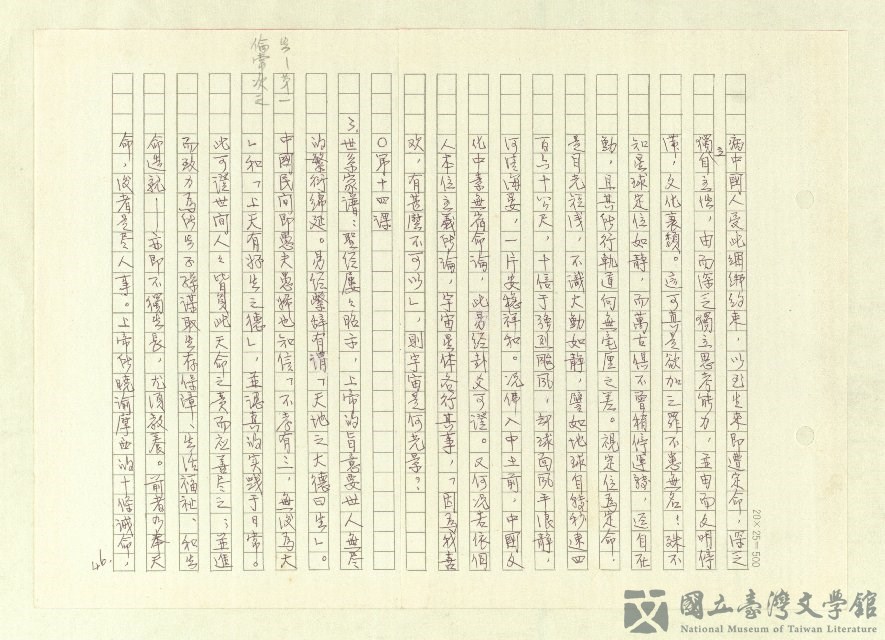 病中國人受此綑綁約束,以至生來即遭定命,深乏
獨自主性,由而深乏獨立思考能力,並由而文明停
滯,文化衰頹。這可真是欲加之罪不患無名!殊不
知星球定位如靜,而萬古俱不曾稍停運轉,逕自在
動,且其所行軌道向無毫厘之差。視定位為定命,
是目光短淺,不識大動如靜,譬如地球自轉秒速四
百六十公尺,十倍于強烈颱風,卻球面風平浪靜,
河清海晏,一片安穩祥和。況佛入中土前,中國文
化中素無宿命論,此易經卦文可證。又何況若依個
人本位主義所論,宇宙星体各行其事,「因為我喜
欢,有甚麼不可以」,則宇宙是何光景?
○第十四課
3. 世系家譜:聖经屢々昭示,上帝的旨意要世人無尽
的繁衍綿延。易经繫辭有謂「天地之大德曰生」。
中國民间即愚夫愚婦也知信「不孝有三,無後為大
」和「上天有好生之德」,並認真的实踐于日常。
此可證世间人々皆負此天命之責而应善尽之;並進
而致力為所生子孫謀取生存保障、生活福祉、和生
命造就——亦即不獨生長,尤須教養。前者乃奉天
命,後者是尽人事。上帝所曉諭摩西的十條誡命,
生—第一
倫常次之
46.
20×25=500
國立臺灣文學館
National Museum of Taiwan Literature